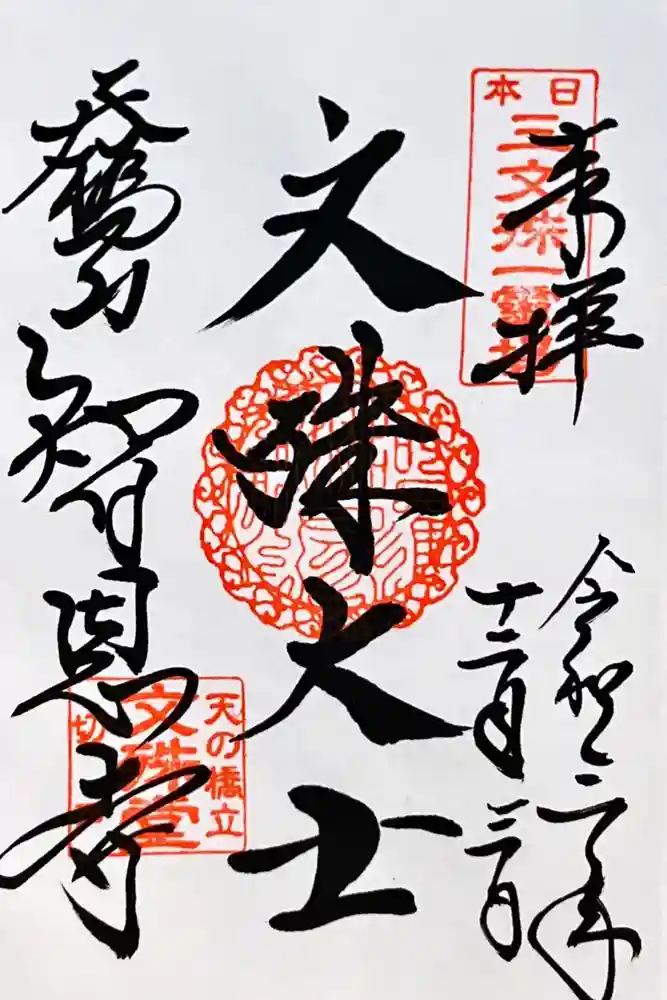 奉拝
日本
三文殊一霊場
令和二年
十二月三日
文殊大士
天橋山智恩寺
天の橋立
文殊堂
切